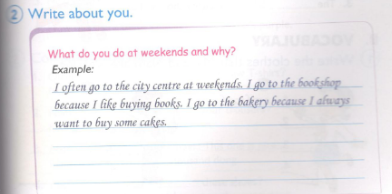 2 Write about you.
What do you do at weekends and why?
Example:
I often go to the city centre at weekends. I go to the bookshop
because I like buying books. I go to the bakery because I always
want to buy some cakes.